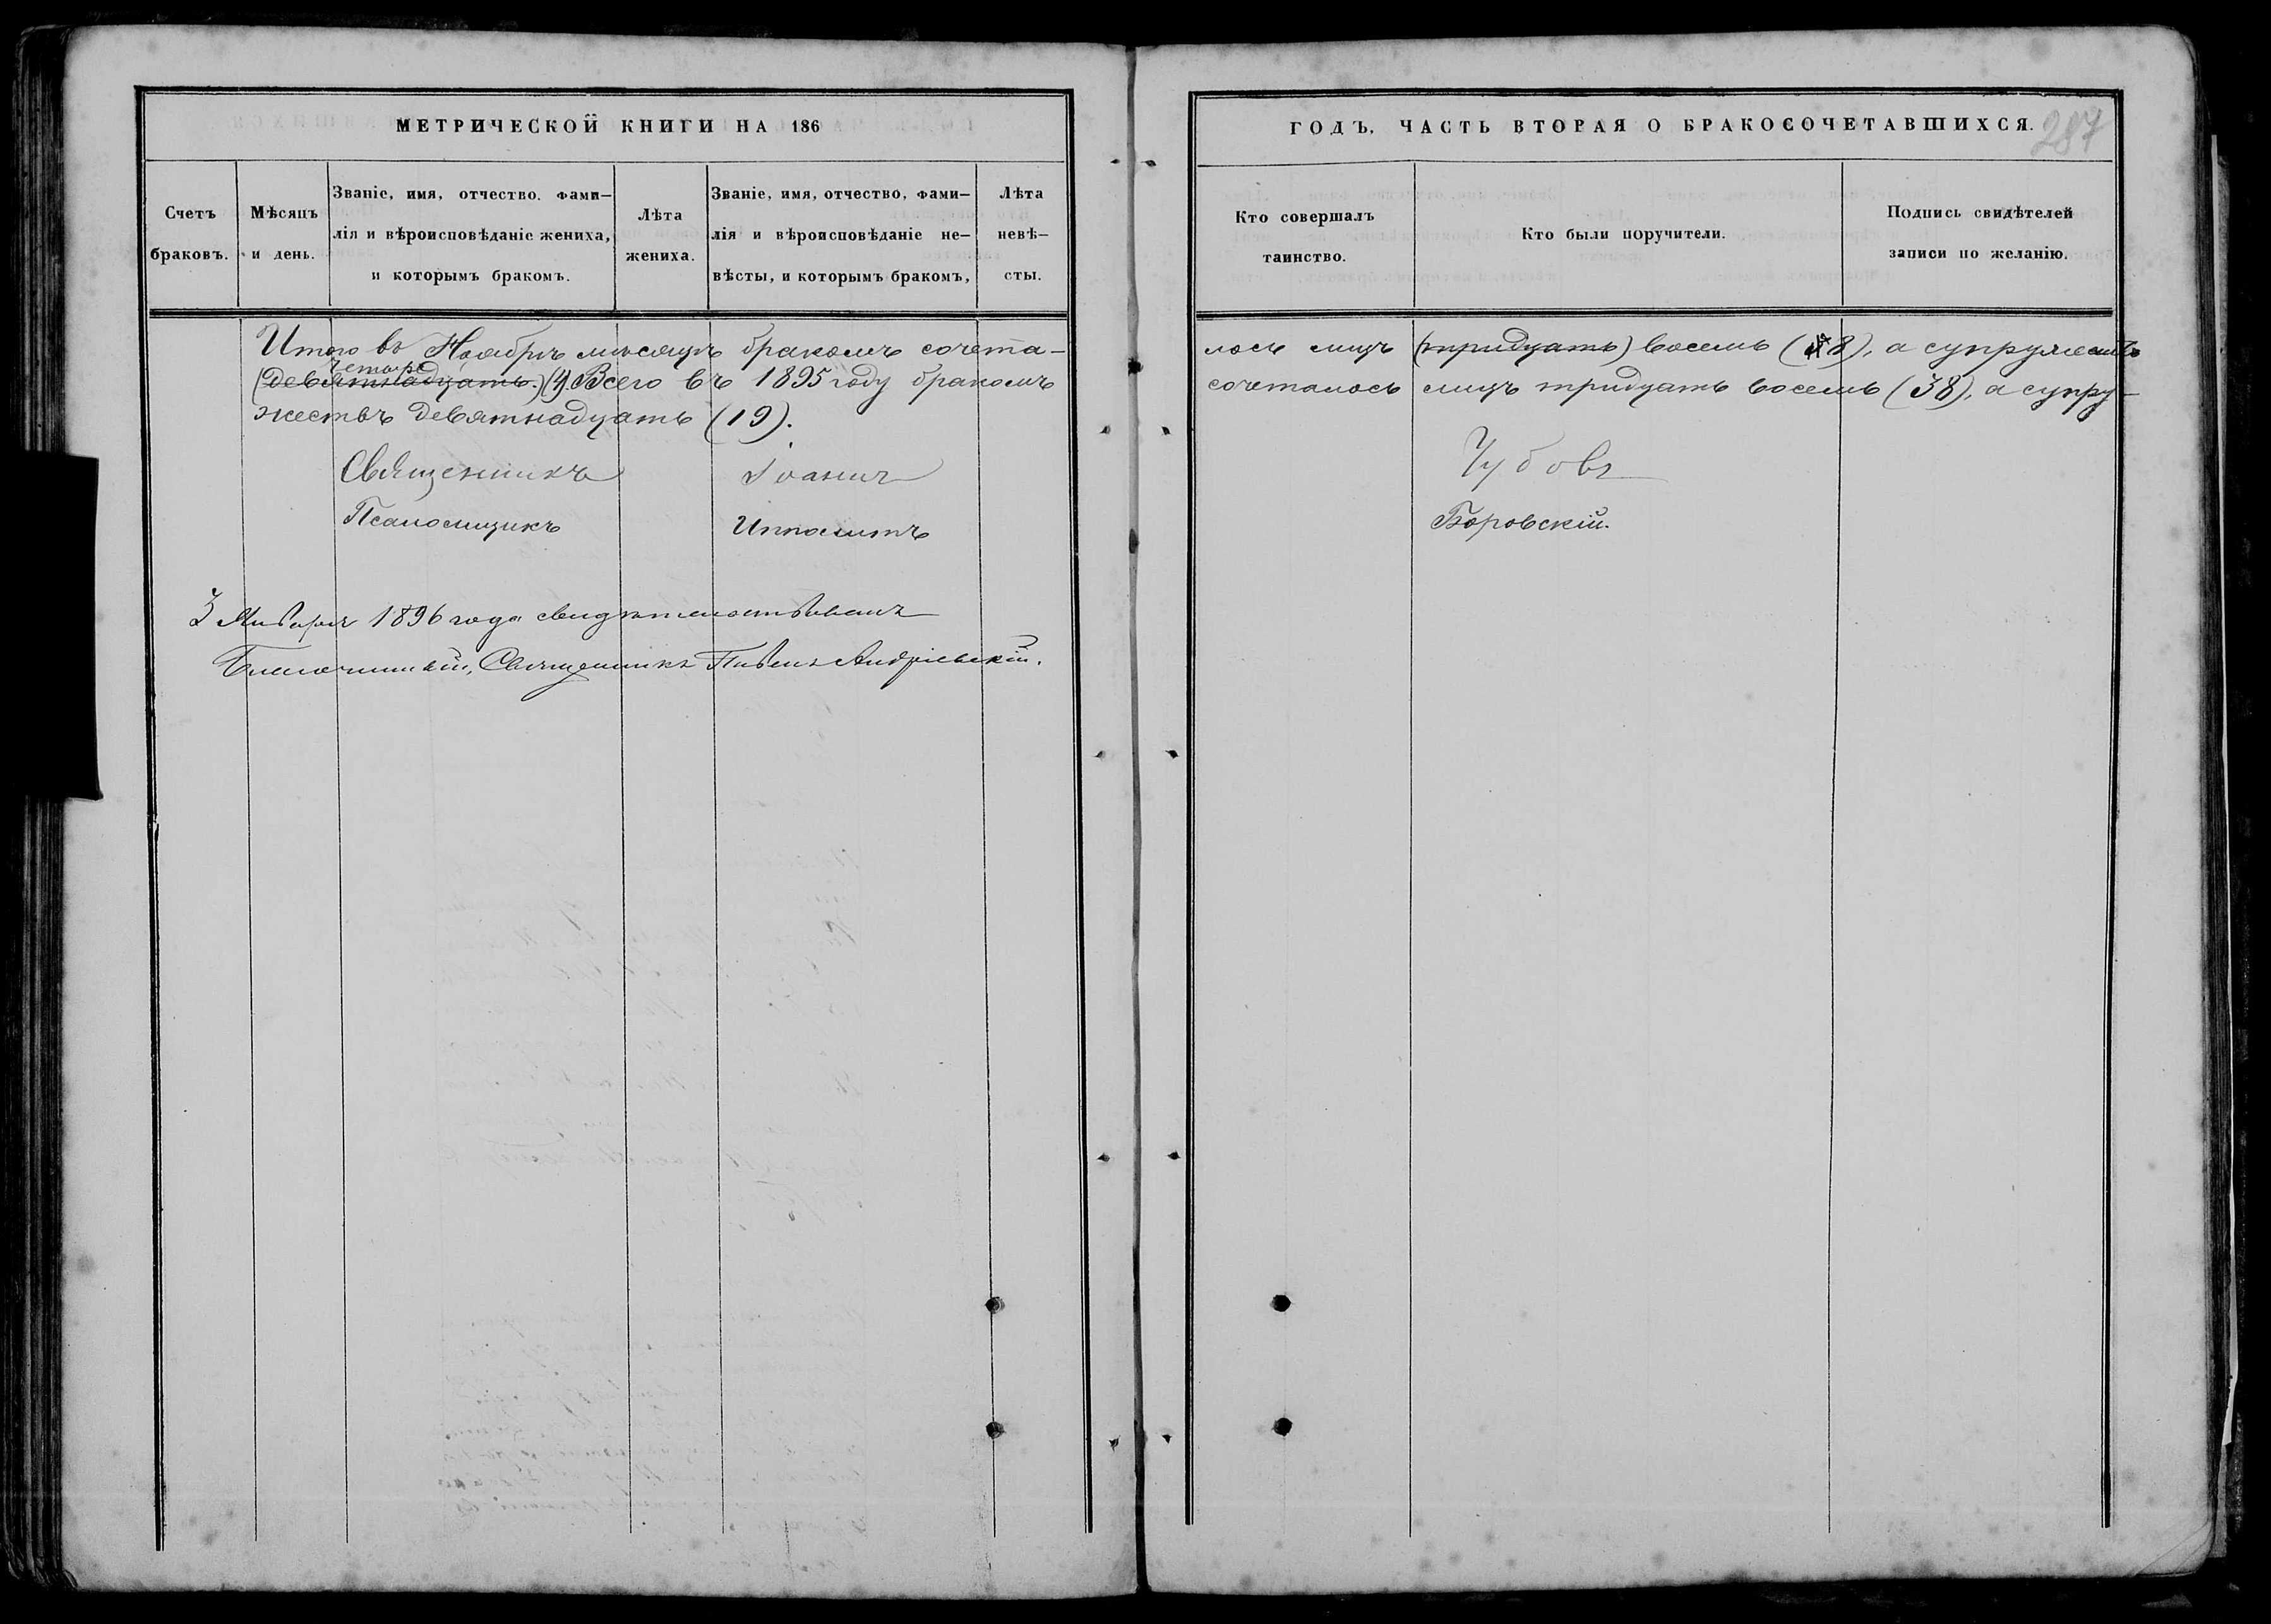 МЕТРИЧЕСКОЙ КНИГИ НА 186
Счетъ браковъ.
Мѣсяцъ и день.
Званіе, имя, отчество. фами-
лія и вѣроисповѣданіе жениха,
и которымъ бракомъ.
Лѣта
жениха.
Званіе, имя, отчество, фами-
лія и вѣроисповѣданіе не-
вѣсты, и которымъ бракомъ,
Лѣта
невѣ-
сты.
Итого въ Ноябрѣ мѣсяцѣ бракомъ сочета-
четыре
(девятнадцать) (4). Всего въ 1895 году бракомъ
жествъ девятнадцать (19).
Священникъ Іоаннъ
Псаломщикъ Ипполитъ
3 Января 1896 года свидѣтельствовалъ
Благочинный, Священникъ Павелъ Андріевскій.
ГОДЪ, ЧАСТЬ ВТОРАЯ О БРАКОСОЧЕТАВШИХСЯ.
287
Кто совершалъ
таинство.
Кто были поручители.
Подпись свидѣтелей
записи по желанію.
лось лицъ (тридцать) восемь (8), а супружествъ
сочеталось лицъ тридцать восемь (38), а супру-
Чубовъ
Боровскій.